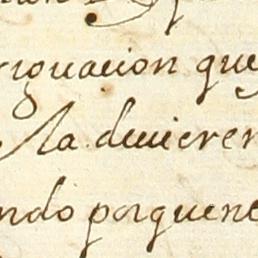 riguacion que
la duvieren
ndo porquene